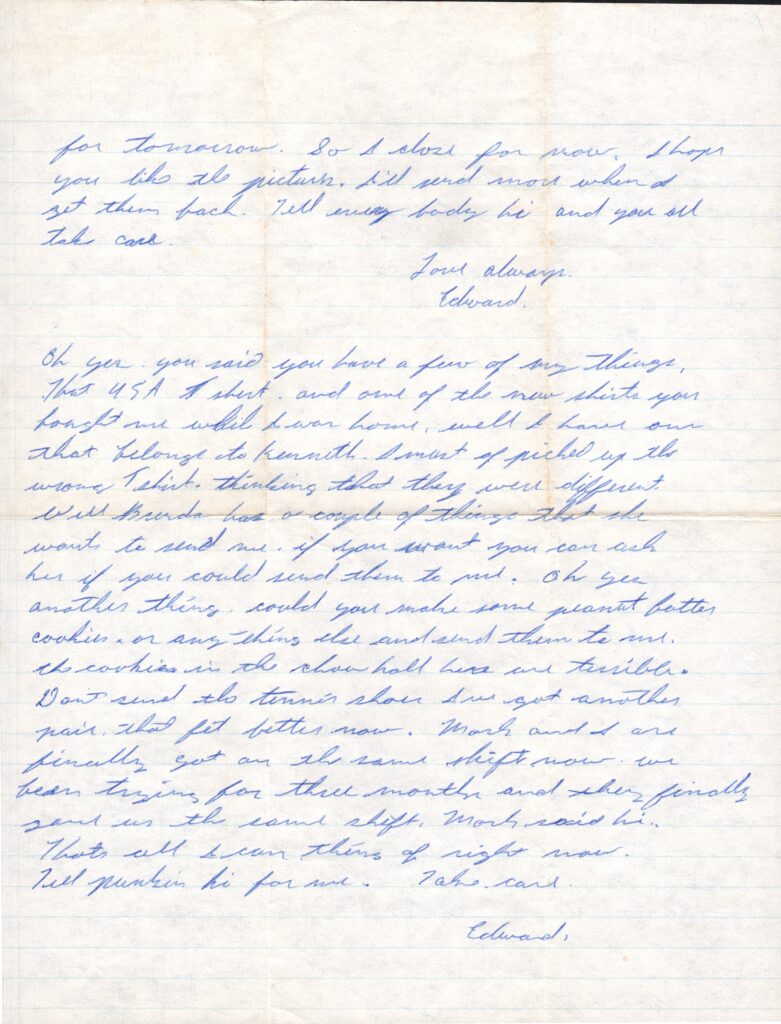 for tomorrow. So I close for now. I hope
you like the pictures. I'll send more when I
get them back. Tell every body hi and you all
take care.
Love always.
Edward.
Oh yes. you said you have a few of my things,
That USA T shirt. and one of the new shirts you
bought me while I was home, well I have one
that belongs to Kenneth. I must of picked up the
wrong T shirt. thinking that they were different
Well Brenda has a couple of things that she
wants to send me. if you want you can ask
her if you could send them to me. Oh yes
another thing. could you make some peanut butter
cookies. or any thing else and send them to me.
the cookies in the chow hall here are terrible.
Dont send the tennis shoes I've got another
pair. that fit better now. Mark and I are
finally got on the same shift now. we
been trying for three months and they finally
gave us the same shift. Mark said hi.
Thats all I can thing of right now.
Tell punkin hi for me. Take care.
Edward.